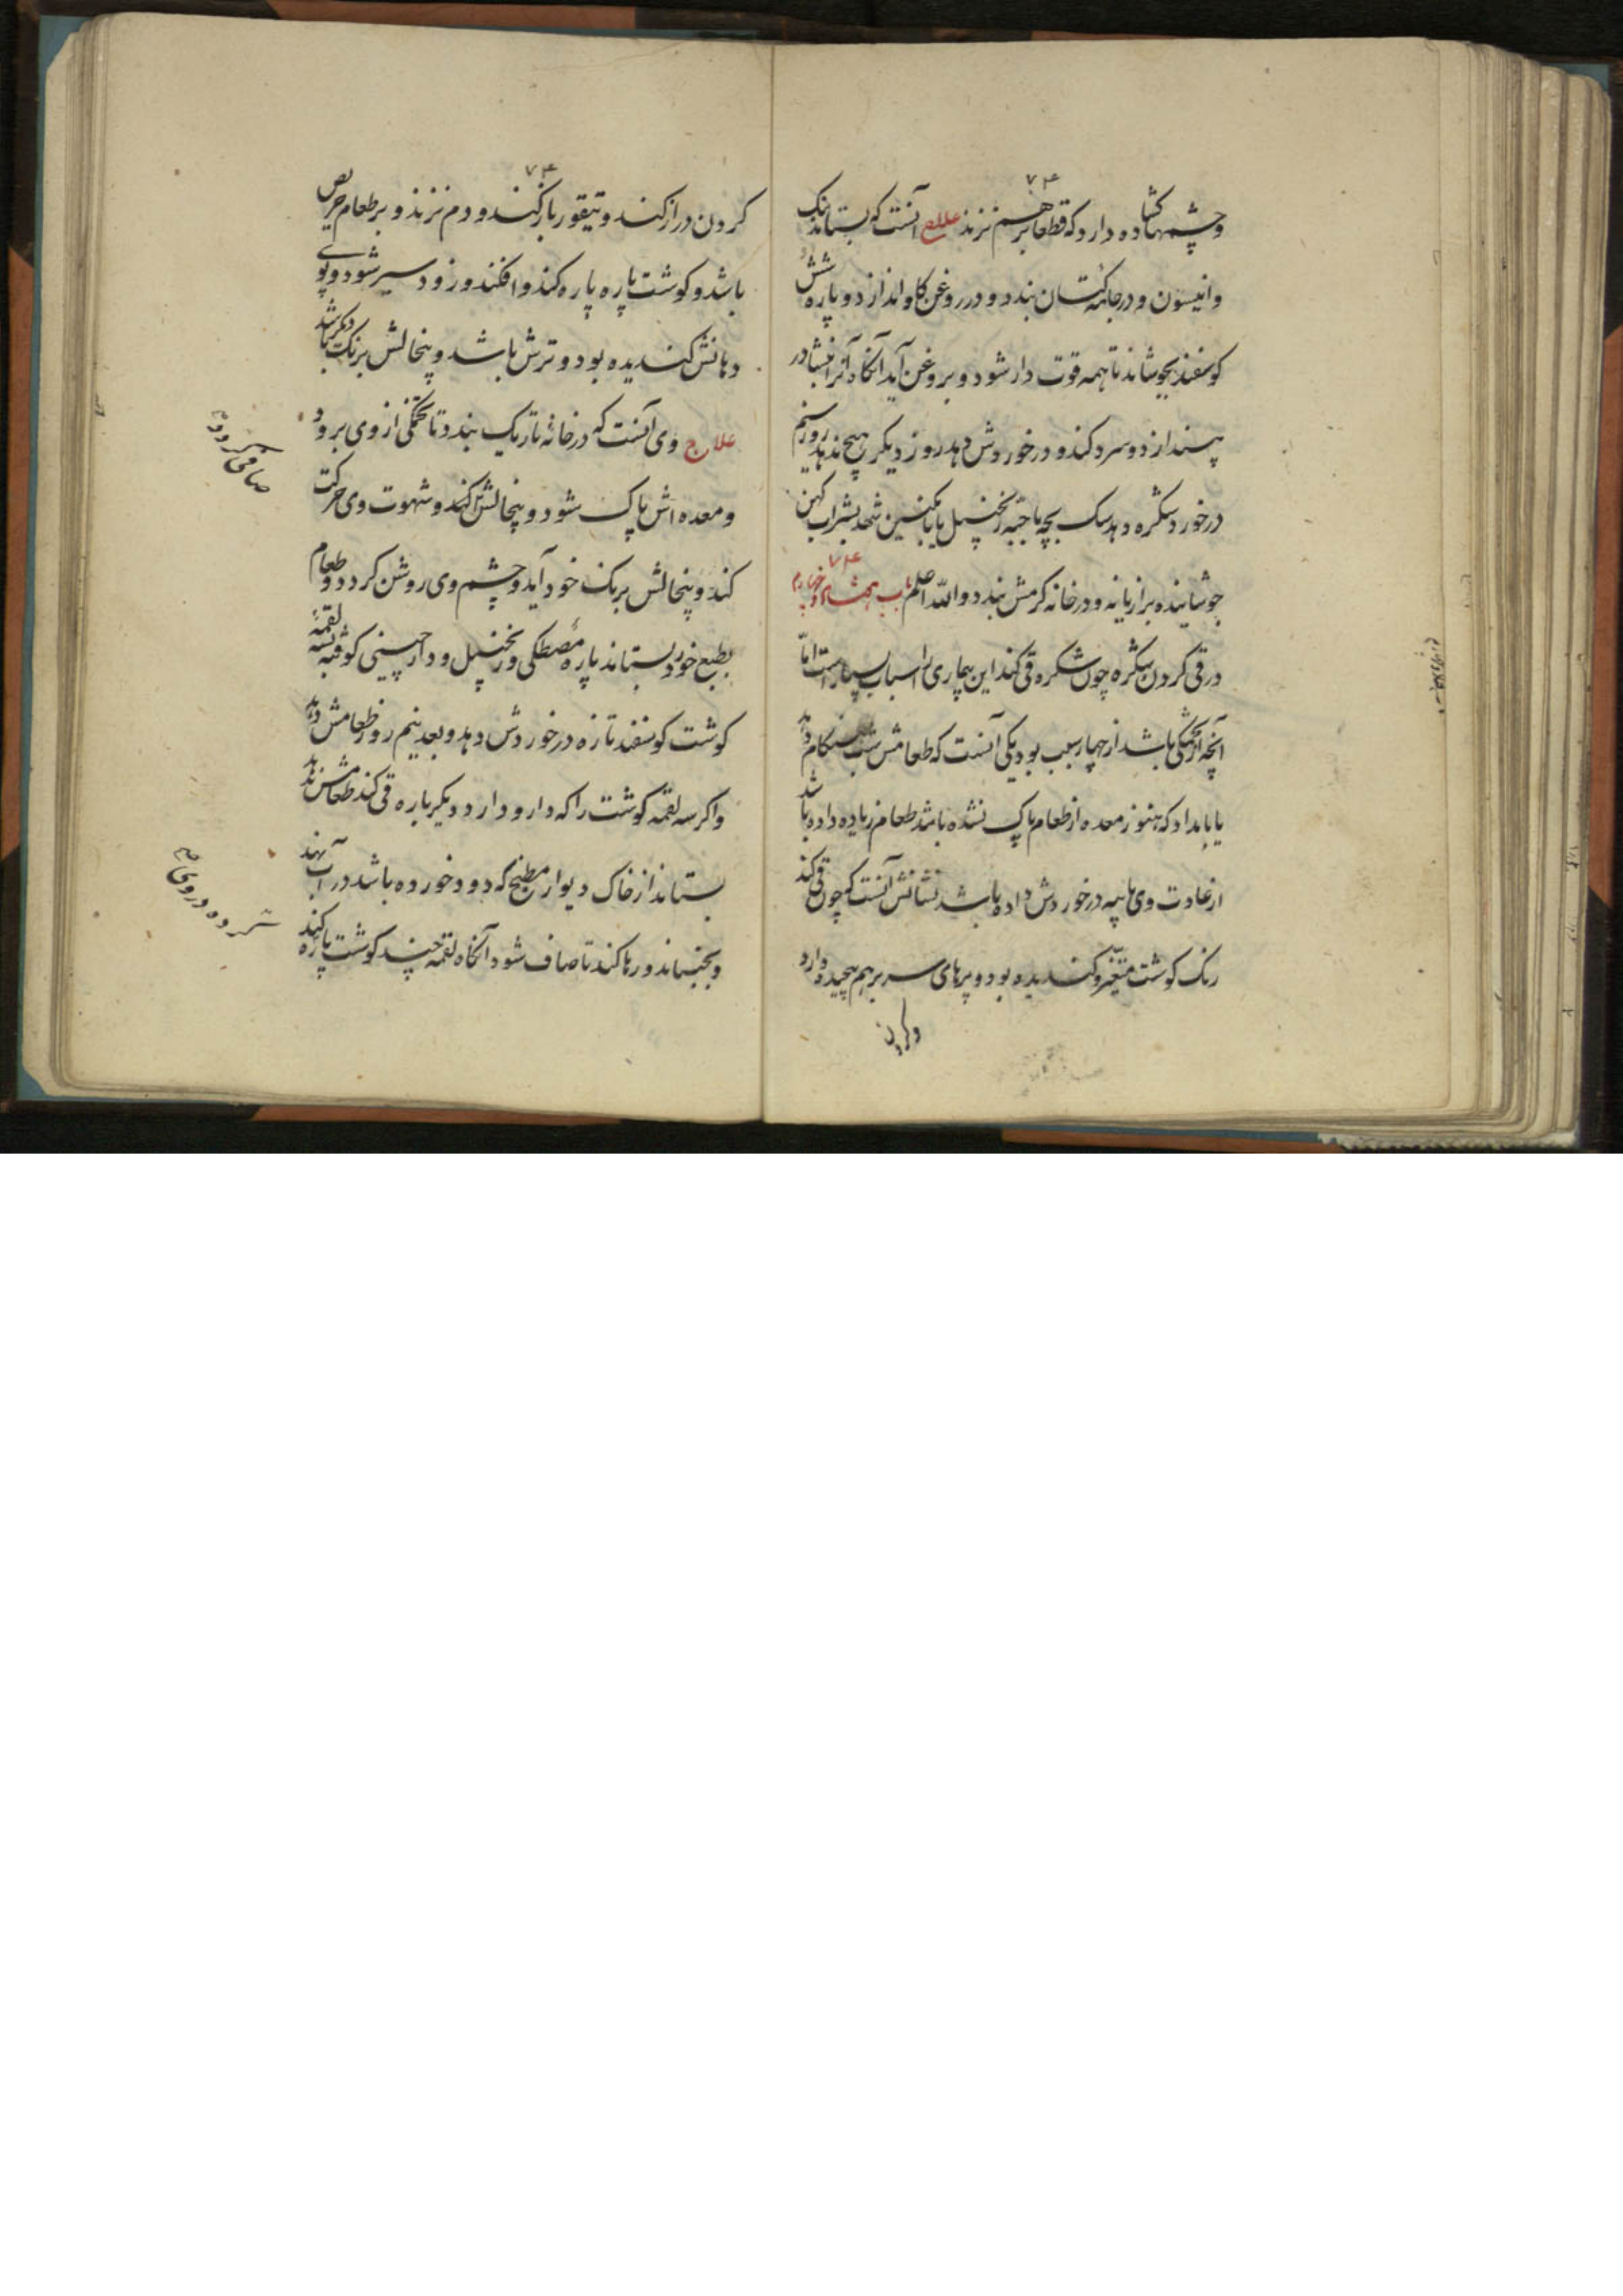 ۷۴
وچشمها کشاده دارد که قطعا برهم نزند علاج آنست که بستاند
وانیسون و در جامه کتان بندد و در روغن کاو اندازد و پاره
کوسفند بجوشاند تا همه قوت دار شود و بروغن آید آنکاه آنرا
بیندازد و سرد کند و در خوردش دهد روز دیکر هیچ ندهد روز سیم
در خورد شکره دهد سک بچه با حبه زنجبیل یا بشراب کهن
جوشانیده برازیانه و در خانه کرمش بندد والله اعلم باب
در قی کردن شکره چون شکره قی کند این بیماری را اسباب بسیارست اما
آنچه از باشد از چهار سبب بود یکی آنست که طعامش شب هنکام دهد
یا بامداد که هنوز معده از طعام پاک نشده باشد طعام زیاده داده باشد
از عادت وی یا پیه در خوردش داده باشد نشانش آنست که چون قی کند
رنک کوشت متغیر و کندیده بود و پرهای سر برهم پیچیده دارد
وکردن
۷۴
کردن دراز کند و تیقور باز کند و دم نزند و بر طعام حریص
باشد و کوشت پاره پاره کند و افکند و زود سیر شود و بوی
دهانش کندیده بود و ترش باشد و پنجالش برنک دیکر باشد
علاج وی آنست که در خانه تاریک بندد تا از وی برود
و معده اش پاک شود و پنجالش کند و شهوت وی حرکت
کند و پنجالش برنک خود آید و چشم وی روشن کردد و طعام
بطبع خورد بستاند پاره مصطکی و زنجبیل و دارچینی کوفته بسه لقمه
کوشت کوسفند تازه در خوردش دهد و بعد نیم روز طعامش دهد
و اکر سه لقمه کوشت را که دارو دارد دیکر باره قی کند طعامش ندهد
بستاند از خاک دیوار مطبخ که دود خورده باشد در آب نهد
و بجنباند و رها کند تا صاف شود آنکاه لقمه چند کوشت پاره کند